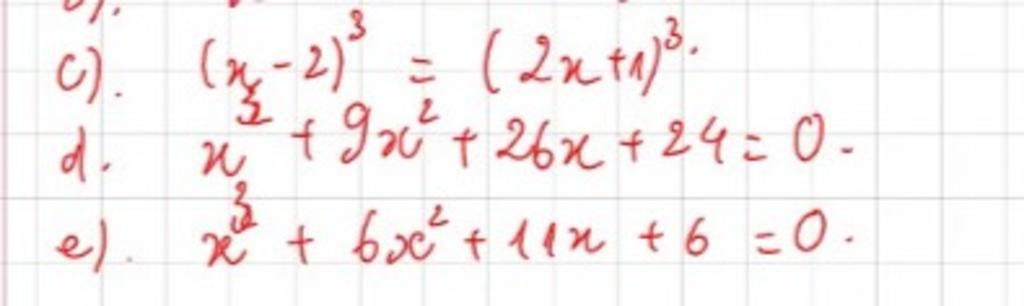 c). (x-2)³ = (2x+1)³.
d. x³ + 9x² + 26x + 24 = 0.
e). x³ + 6x² + 11x + 6 = 0.